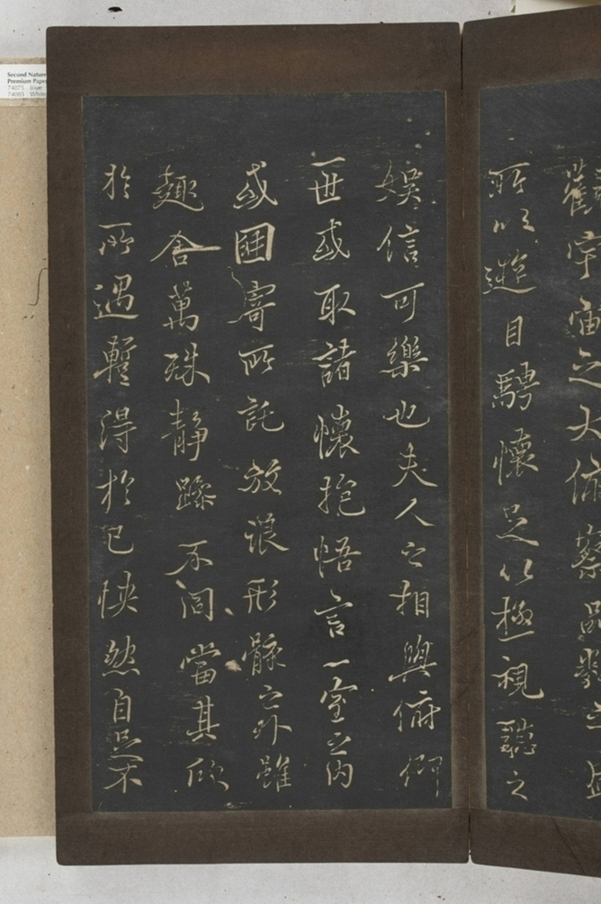 觀宇宙之大俯察品類之盛
所以遊目騁懷足以極視聽之
娛信可樂也夫人之相與俯仰
一世或取諸懷抱悟言一室之內
或因寄所託放浪形骸之外雖
趣舍萬殊靜躁不同當其欣
於所遇暫得於己怏然自足不
Second Nature
Premium Pape